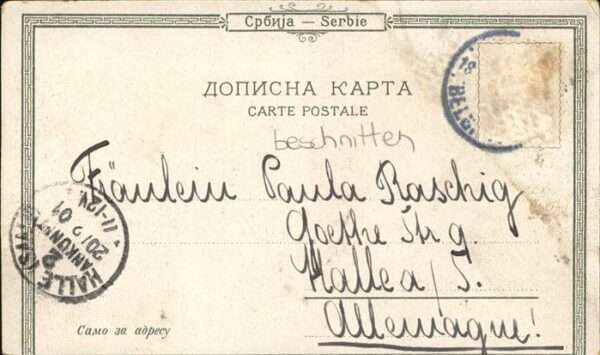 Србија — Serbie
ДОПИСНА КАРТА
CARTE POSTALE
beschnitten
Fräulein Paula Raschig
Goethe Str 9.
Halle a/S.
Allemagne!
HALLE (S)
ANKUNFT
20/2 01
11-12V
2
Само за адресу